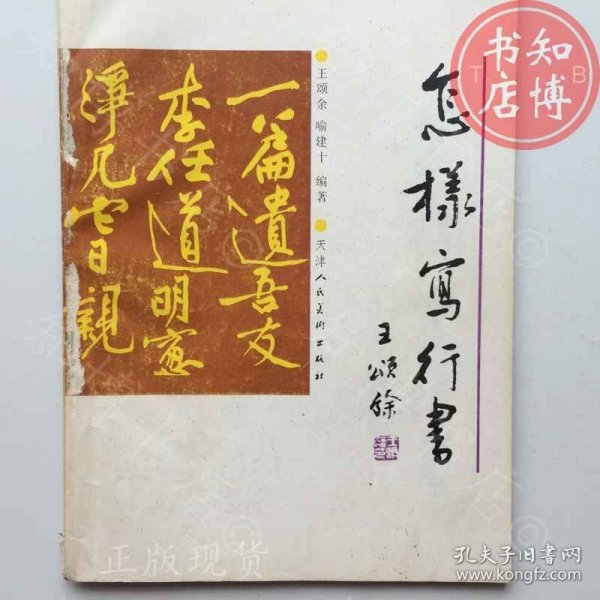 怎樣寫行書
王頌餘
王颂余 喻建十 编著
天津人民美術出版社
一篇遺吾友
李任道明窓
淨几時日親
知博书店
正版现货
孔夫子旧书网
www.kongfz.com